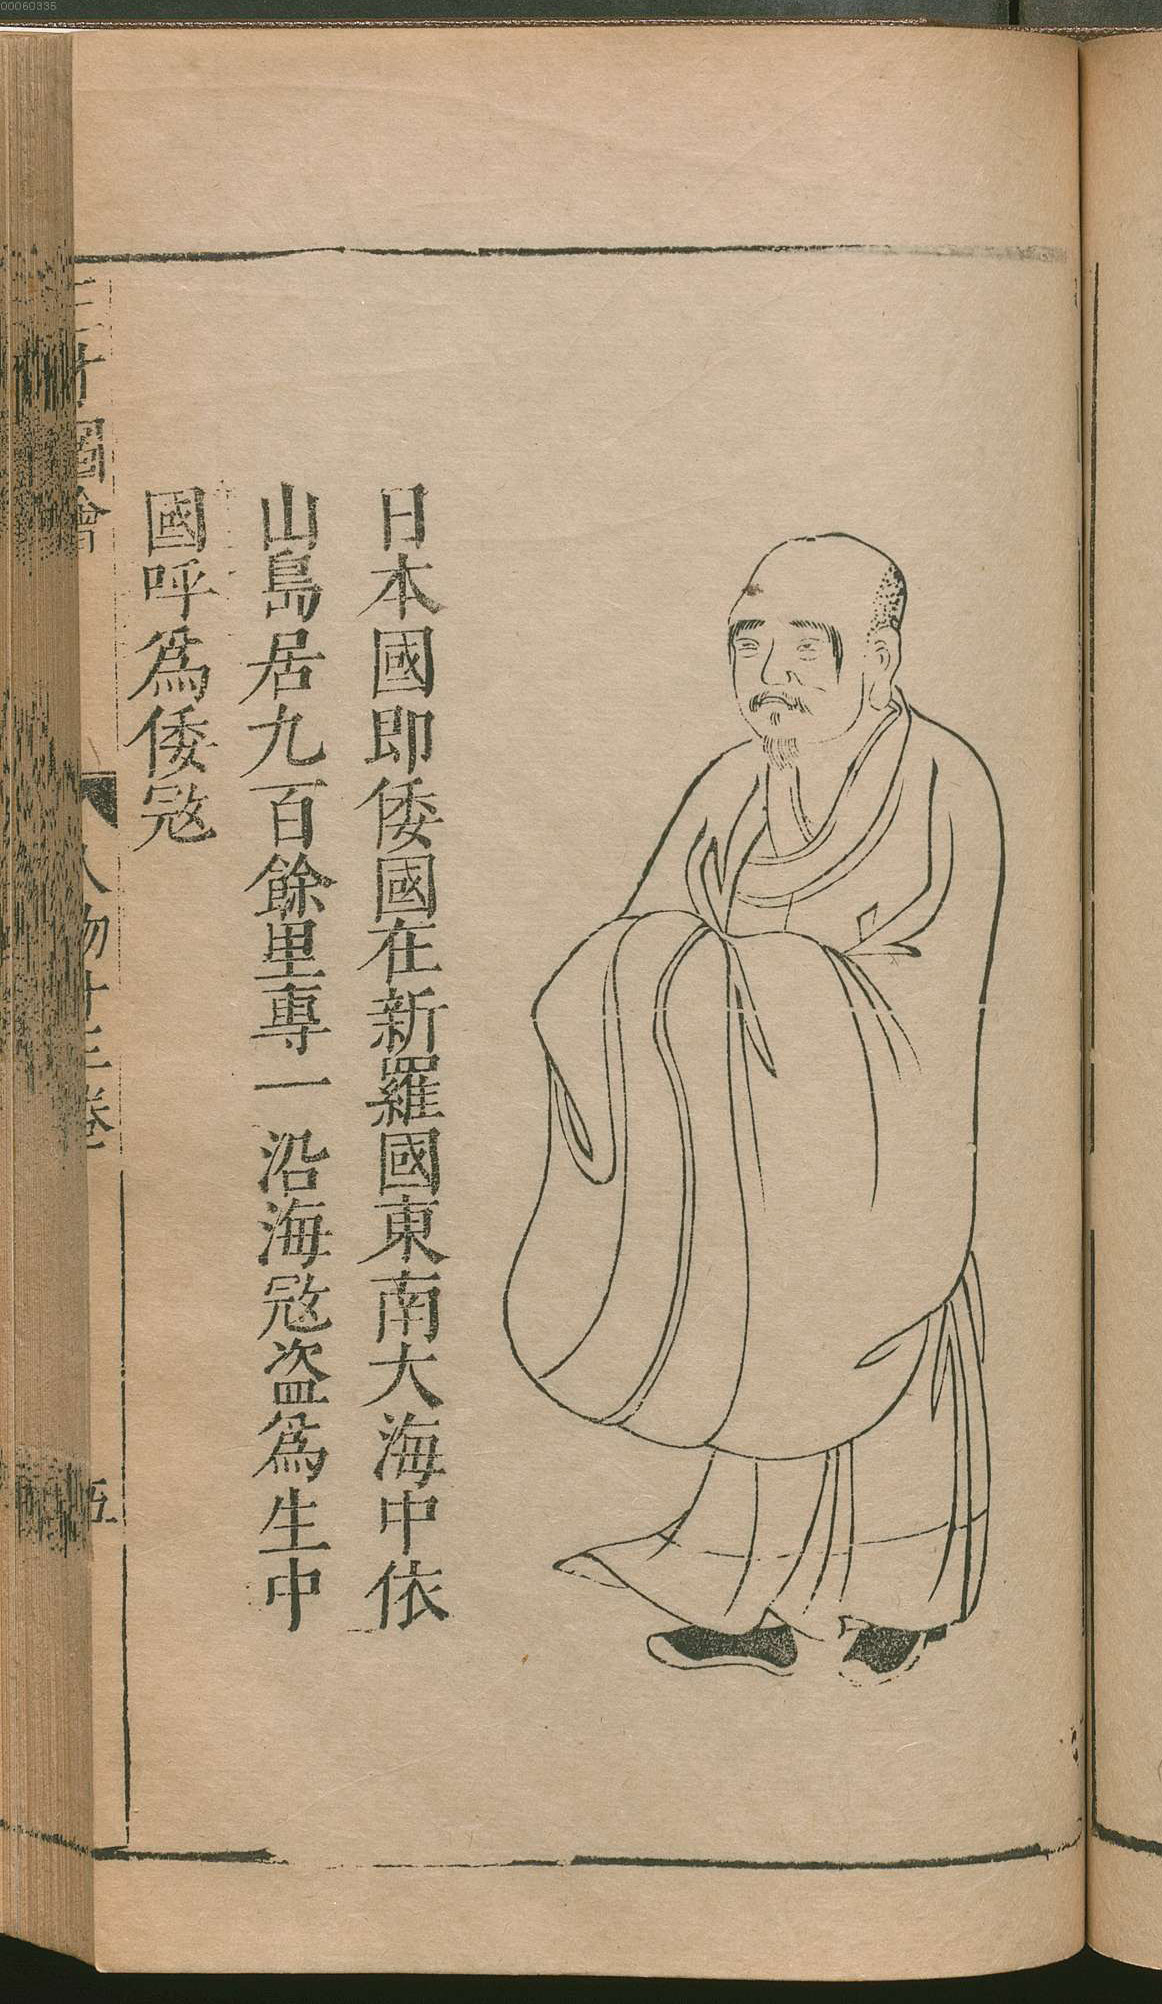 日本國即倭國在新羅國東南大海中依
山島居九百餘里專一沿海㓂盗爲生中
國呼爲倭㓂
三才圖會
人物十二卷
五
00060335